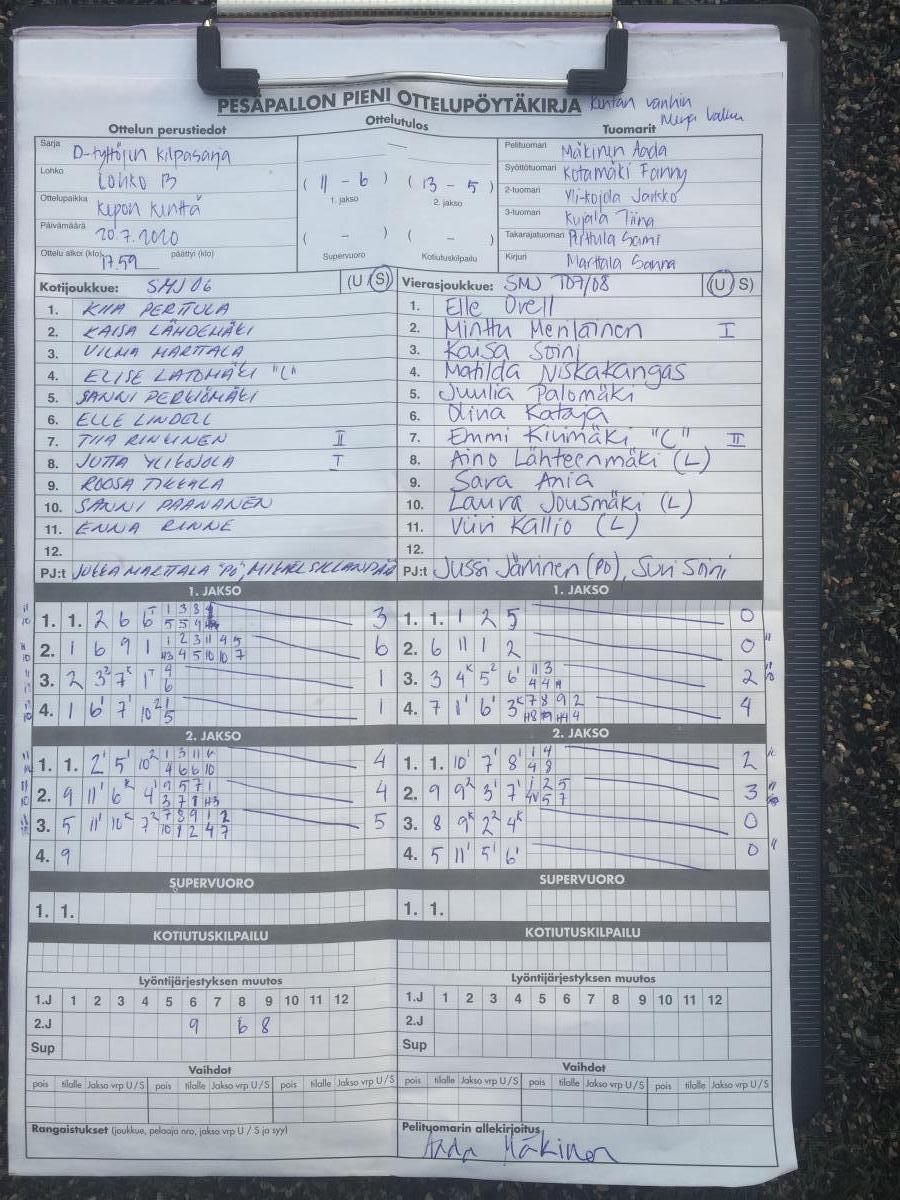 PESÄPALLON PIENI OTTELUPÖYTÄKIRJA
Kentän vanhin
Ottelun perustiedot
Ottelutulos
Tuomarit
Sarja D-tyttöjen kilpasarja
Lohko Lohko B
Ottelupaikka Kepon Kenttä
Päivämäärä 20.7.2020
Ottelu alkoi (klo) 17.59 päättyi (klo)
( 11 - 6 ) ( 13 - 5 )
1. jakso 2. jakso
( - ) ( - )
Supervuoro Kotiutuskilpailu
Pelituomari Mäkinen Aada
Syöttötuomari Kotamäki Fanny
2-tuomari Yli-Kojola Jarkko
3-tuomari Kujala Tiina
Takarajatuomari Perttula Sami
Kirjuri Marttala Sanna
Kotijoukkue: SMJ 06 (U S)
1. KIIA PERTTULA
2. KAISA LÄHDEMÄKI
3. VILMA MARTTALA
4. ELISE LATOMÄKI "C"
5. SANNI PERKIÖMÄKI
6. ELLE LINDELL
7. TIIA RINKINEN II
8. JUTTA YLIKOJOLA I
9. ROOSA TIKKALA
10. SANNI PAANANEN
11. ENNA RINNE
12.
PJ:t JUKKA MARTTALA "PO", MIKAEL SILLANPÄÄ
Vierasjoukkue: SMJ T07/08 (U S)
1. Elle Orell
2. Minttu Meriläinen I
3. Kaisa Soini
4. Matilda Niskakangas
5. Juulia Palomäki
6. Olina Kataja
7. Emmi Kivimäki "C" II
8. Aino Lähteenmäki (L)
9. Sara Ania
10. Laura Jousmäki (L)
11. Viivi Kallio (L)
12.
PJ:t Jussi Järvinen (PO), Suvi Soini
1. JAKSO
1. 1. 2 6 6 3
2. 1 6 9 1 6
3. 2 3² 7ᴷ 1 1
4. 1 6' 7' 10² 1
1. JAKSO
1. 1. 1 2 5 0
2. 6 11 1 2 0
3. 3 4ᴷ 5² 6' 2
4. 7 1' 6' 3ᴷ 4
2. JAKSO
1. 1. 2' 5' 10² 4
2. 9 11' 6ᴷ 4' 4
3. 5 11' 10ᴷ 7² 5
4. 9
2. JAKSO
1. 1. 10' 7 8' 2
2. 9 9² 3' 7' 3
3. 8 9ᴷ 2² 4ᴷ 0
4. 5 11' 5' 6' 0
SUPERVUORO
1. 1.
SUPERVUORO
1. 1.
KOTIUTUSKILPAILU
KOTIUTUSKILPAILU
Lyöntijärjestyksen muutos
1.J 1 2 3 4 5 6 7 8 9 10 11 12
2.J 9 6 8
Sup
Lyöntijärjestyksen muutos
1.J 1 2 3 4 5 6 7 8 9 10 11 12
2.J
Sup
Vaihdot
pois tilalle Jakso vrp U/S pois tilalle Jakso vrp U/S pois tilalle Jakso vrp U/S
Vaihdot
pois tilalle Jakso vrp U/S pois tilalle Jakso vrp U/S pois tilalle Jakso vrp U/S
Rangaistukset (joukkue, pelaaja nro, jakso vrp U / S ja syy)
Pelituomarin allekirjoitus
Aada Mäkinen